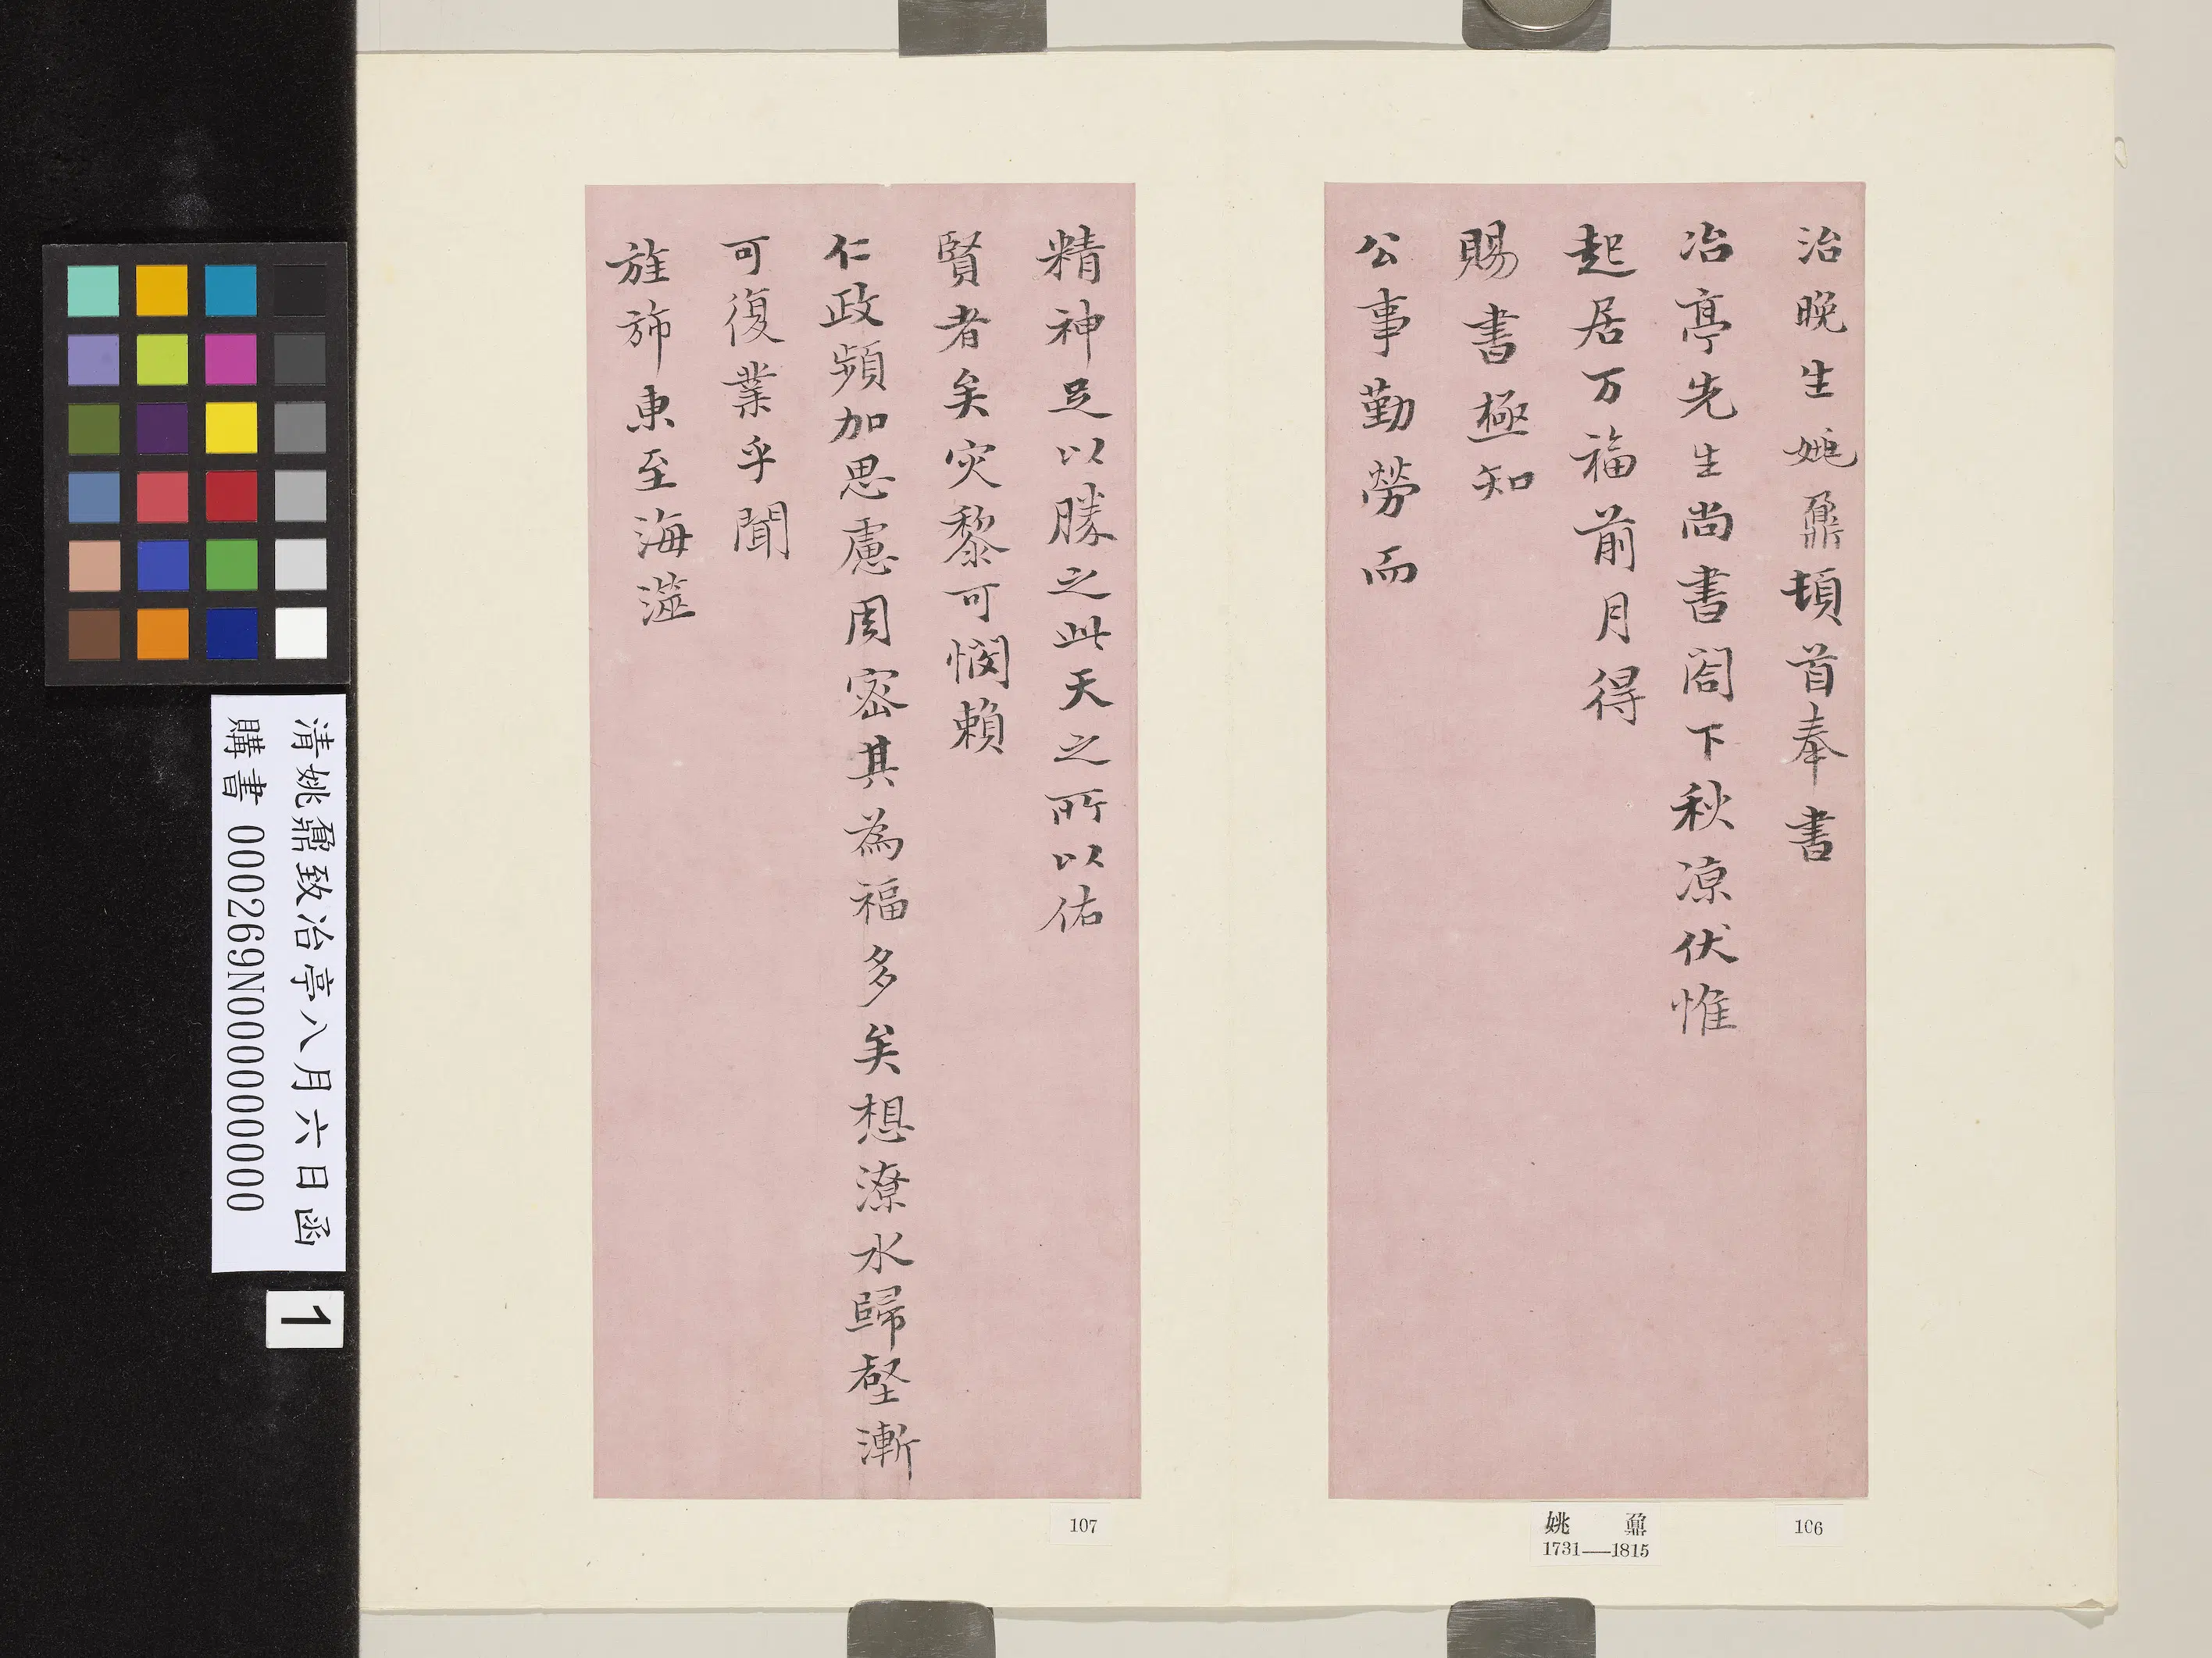 治晚生姚鼐頓首奉書
冶亭先生尚書閣下秋涼伏惟
起居万福前月得
賜書極知
公事勤勞而
精神足以勝之此天之所以佑
賢者矣灾黎可憫賴
仁政頻加思慮周密其為福多矣想潦水歸壑漸
可復業乎聞
旌斾東至海澨
106
姚鼐
1731—1815
107
清姚鼐致冶亭八月六日函
購書 000269N000000000
1